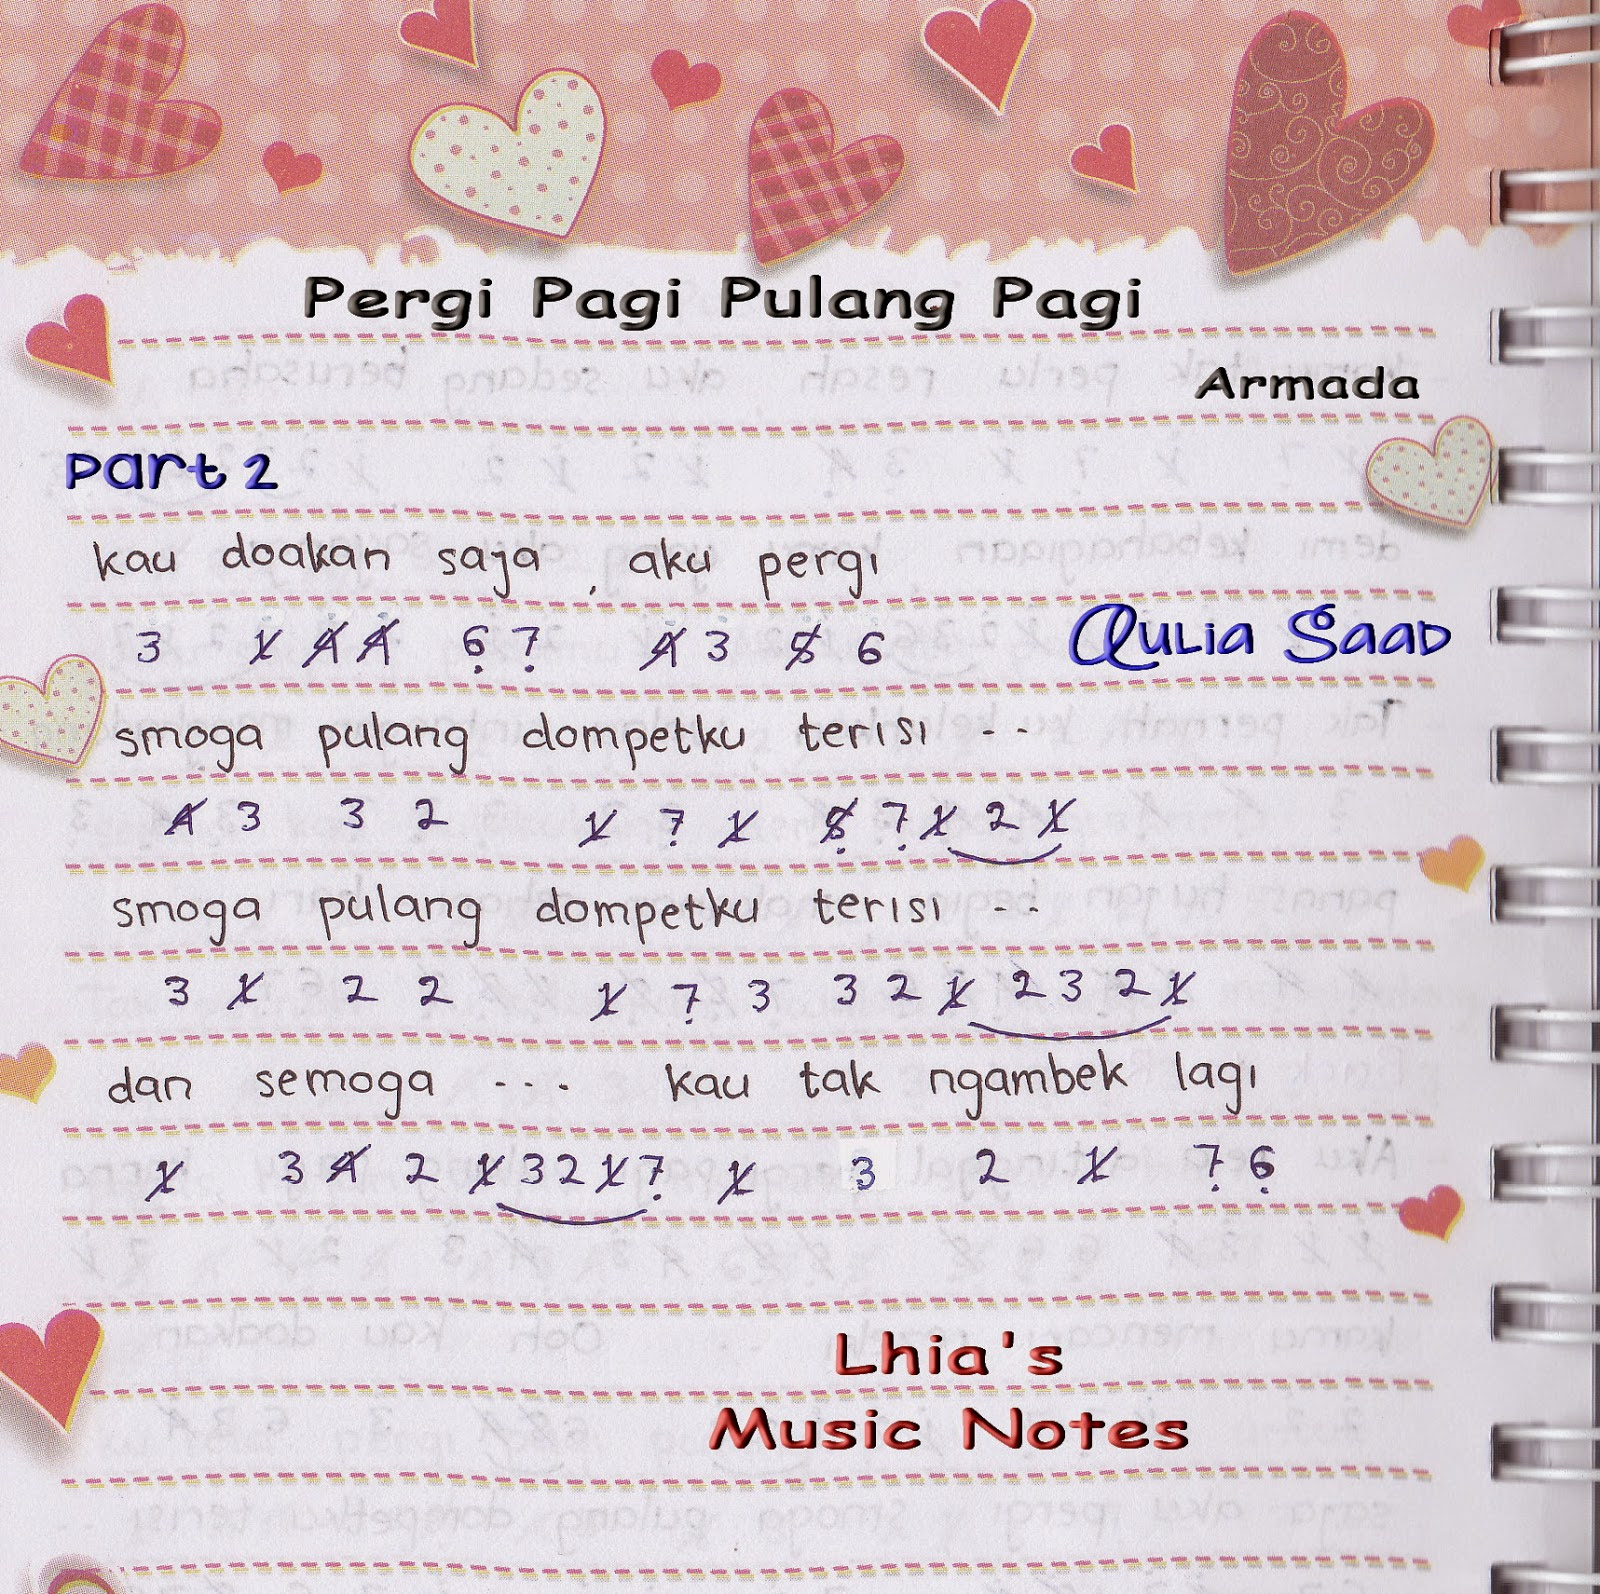 Pergi Pagi Pulang Pagi
Armada
Part 2
kau doakan saja , aku pergi
3 1 4 4 6 7 4 3 5 6
Qulia Saad
smoga pulang dompetku terisi --
4 3 3 2 1 7 1 5 7 1 2 1
smoga pulang dompetku terisi --
3 1 2 2 1 7 3 3 2 1 2 3 2 1
dan semoga --- kau tak ngambek lagi
1 3 4 2 1 3 2 1 7 1 3 2 1 7 6
Lhia's
Music Notes